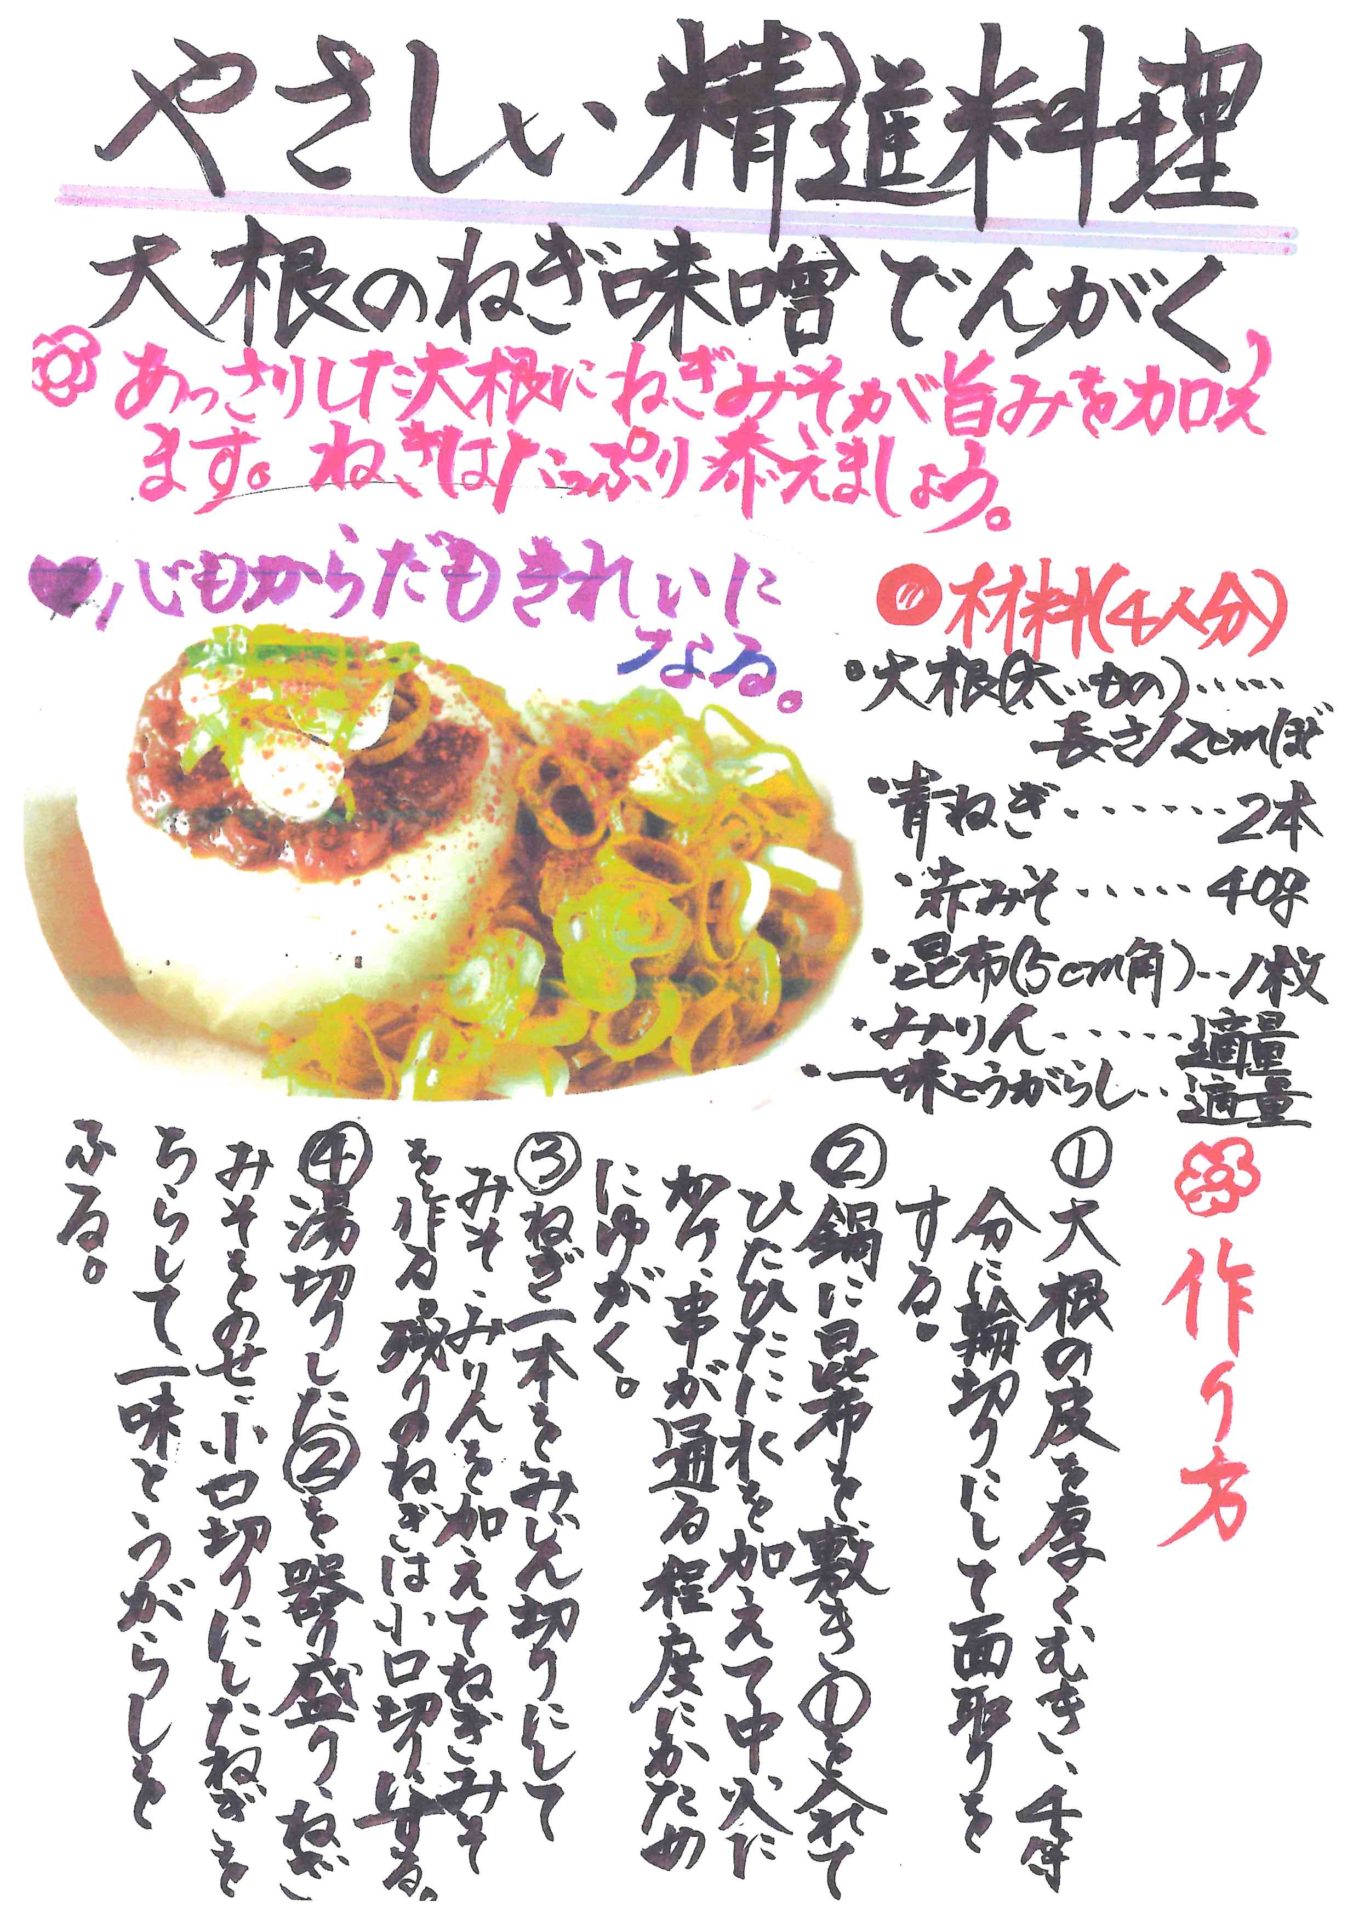 やさしい精進料理
大根のねぎ味噌でんがく
あっさりした大根にねぎみそが旨みを加え
ます。ねぎはたっぷり添えましょう。
心もからだもきれいに
なる。
材料(4人分)
・大根(太いもの)・・・・・
長さ12cmほど
・青ねぎ・・・・・・・2本
・赤みそ・・・・・40g
・昆布(5cm角)・・1枚
・みりん・・・・・適量
・一味とうがらし・・適量
作り方
①大根の皮を厚くむき、4等
分に輪切りにして面取りを
する。
②鍋に昆布を敷き①を入れて
ひたひたに水を加えて中火に
かけ、串が通る程度にかため
にゆがく。
③ねぎ一本をみじん切りにして
みそ、みりんを加えてねぎみそ
を作る。残りのねぎは小口切りにする。
④湯切りした②を器に盛り、ねぎ
みそをのせ、小口切りにしたねぎを
ちらして、一味とうがらしを
ふる。